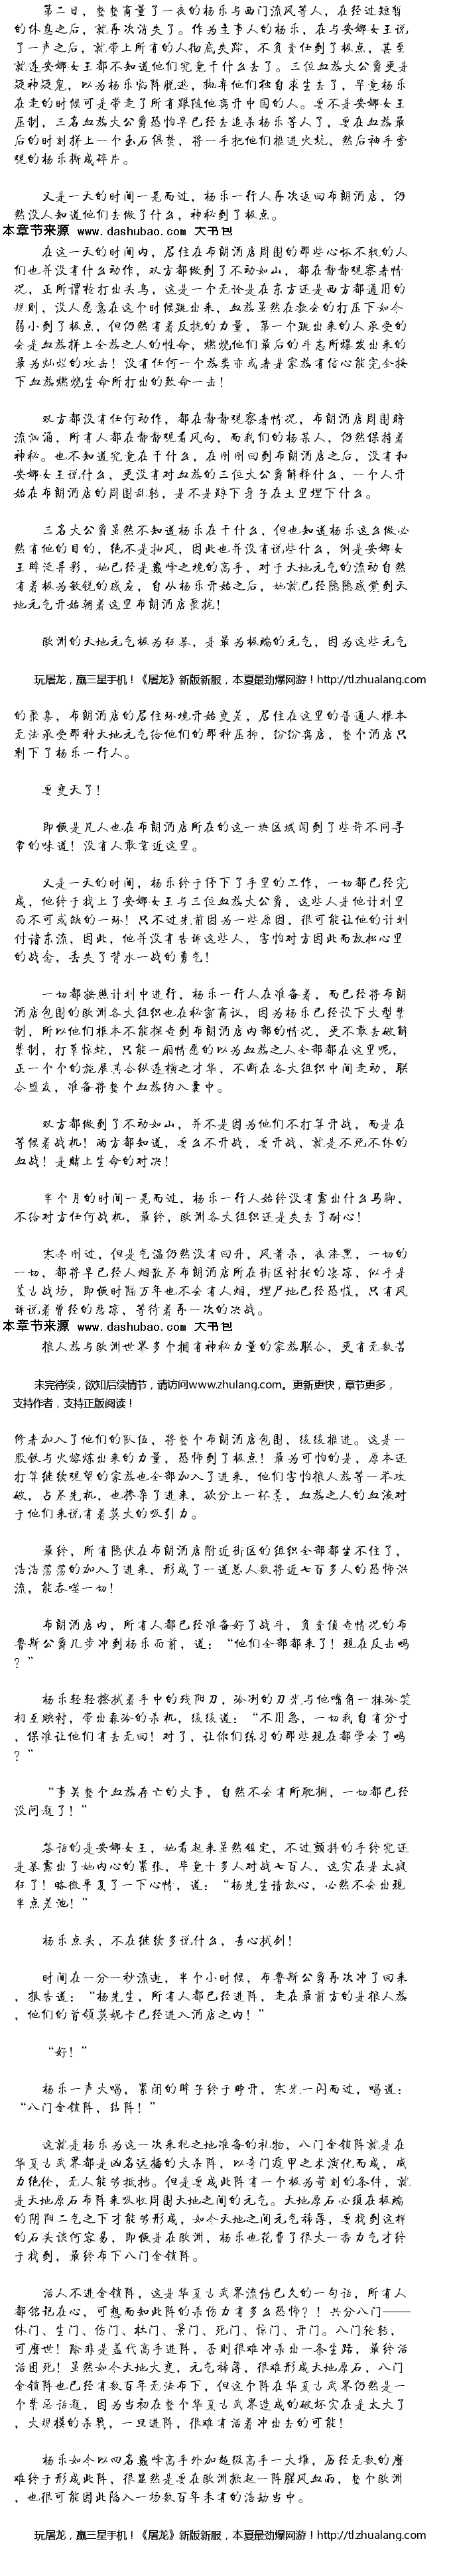 第二日，整整商量了一夜的杨乐与西门流风等人，在经过短暂
的休息之后，就再次消失了。作为主事人的杨乐，在与安娜女王说
了一声之后，就带上所有的人彻底失踪，不负责任到了极点，甚至
就连安娜女王都不知道他们究竟干什么去了。三位血族大公爵更是
疑神疑鬼，以为杨乐临阵脱逃，抛弃他们独自求生去了，毕竟杨乐
在走的时候可是带走了所有跟随他离开中国的人。要不是安娜女王
压制，三名血族大公爵恐怕早已经去追杀杨乐等人了，要在血族最
后的时刻拼上一个玉石俱焚，将一手把他们推进火坑，然后袖手旁
观的杨乐撕成碎片。
又是一天的时间一晃而过，杨乐一行人再次返回布朗酒店，仍
然没人知道他们去做了什么，神秘到了极点。
本章节来源 www.dashubao.com 大书包
在这一天的时间内，居住在布朗酒店周围的那些心怀不轨的人
们也并没有什么动作，双方都做到了不动如山，都在静静观察着情
况，正所谓枪打出头鸟，这是一个无论是在东方还是西方都通用的
规则，没人愿意在这个时候跳出来，血族虽然在教会的打压下如今
弱小到了极点，但仍然有着反扰的力量，第一个跳出来的人承受的
会是血族拼上全族之人的性命，燃烧他们最后的斗志所爆发出来的
最为灿烂的攻击！没有任何一个族类亦或者是家族有信心能完全接
下血族燃烧生命所打出的致命一击！
双方都没有任何动作，都在静静观察着情况，布朗酒店周围暗
流汹涌，所有人都在静静观看风向，而我们的杨某人，仍然保持着
神秘。也不知道究竟在干什么，在刚刚回到布朗酒店之后，没有和
安娜女王说什么，更没有对血族的三位大公爵解释什么，一个人开
始在布朗酒店的周围乱转，是不是蹲下身子在土里埋下什么。
三名大公爵虽然不知道杨乐在干什么，但也知道杨乐这么做必
然有他的目的，绝不是抽风，因此也并没有说些什么，倒是安娜女
王眸泛异彩，她已经是巅峰之境的高手，对于天地元气的流动自然
有着极为敏锐的感应，自从杨乐开始之后，她就已经隐隐感觉到天
地元气开始朝着这里布朗酒店聚拢！
欧洲的天地元气极为狂暴，是最为极端的元气，因为这些元气
玩屠龙，赢三星手机！《屠龙》新版新服，本夏最劲爆网游！http://tl.zhulang.com
的聚集，布朗酒店的居住环境开始变差，居住在这里的普通人根本
无法承受那种天地元气给他们的那种压抑，纷纷离店，整个酒店只
剩下了杨乐一行人。
要变天了！
即便是凡人也在布朗酒店所在的这一块区域闻到了些许不同寻
常的味道！没有人敢靠近这里。
又是一天的时间，杨乐终于停下了手里的工作，一切都已经完
成，他终于找上了安娜女王与三位血族大公爵，这些人是他计划里
面不可或缺的一环！只不过先前因为一些原因，很可能让他的计划
付诸东流，因此，他并没有告诉这些人，害怕对方因此而放松心里
的战念，丢失了背水一战的勇气！
一切都按照计划中进行，杨乐一行人在准备着，而已经将布朗
酒店包围的欧洲各大组织也在秘密商议，因为杨乐已经设下大型禁
制，所以他们根本不能探查到布朗酒店内部的情况，更不敢去破解
禁制，打草惊蛇，只能一厢情愿的以为血族之人全部都在这里呢，
正一个个的施展其合纵连横之才华，不断在各大组织中间走动，联
合盟友，准备将整个血族纳入囊中。
双方都做到了不动如山，并不是因为他们不打算开战，而是在
等候着战机！两方都知道，要么不开战，要开战，就是不死不休的
血战！是赌上生命的对决！
半个月的时间一晃而过，杨乐一行人始终没有露出什么马脚，
不给对方任何战机，最终，欧洲各大组织还是失去了耐心！
寒冬刚过，但是气温仍然没有回升，风萧杀，夜漆黑，一切的
一切，都将早已经人烟散尽布朗酒店所在街区衬托的凄凉，似乎是
荒古战场，即便时隔万年也不会有人烟，埋尸地已经恐慌，只有风
诉说着曾经的悲凉，等待着再一次的决战。
本章节来源 www.dashubao.com 大书包
狼人族与欧洲世界多个拥有神秘力量的家族联合，更有无数苦
未完待续，欲知后续情节，请访问www.zhulang.com。更新更快，章节更多，
支持作者，支持正版阅读！
修者加入了他们的队伍，将整个布朗酒店包围，缓缓推进。这是一
股铁与火熔炼出来的力量，恐怖到了极点！最为可怕的是，原本还
打算继续观望的家族也全部加入了进来，他们害怕狼人族等一举攻
破，占尽先机，也掺杂了进来，欲分上一杯羹，血族之人的血液对
于他们来说有着莫大的吸引力。
最终，所有隐伏在布朗酒店附近街区的组织全部都坐不住了，
浩浩荡荡的加入了进来，形成了一道总人数将近七百多人的恐怖洪
流，能吞噬一切！
布朗酒店内，所有人都已经准备好了战斗，负责侦查情况的布
鲁斯公爵几步冲到杨乐面前，道：“他们全部都来了！现在反击吗
？”
杨乐轻轻擦拭着手中的残阳刀，泠冽的刀光与他嘴角一抹冷笑
相互映衬，带出森冷的杀机，缓缓道：“不用急，一切我自有分寸
，保准让他们有去无回！对了，让你们练习的那些现在都学会了吗
？”
“事关整个血族存亡的大事，自然不会有所耽搁，一切都已经
没问题了！”
答话的是安娜女王，她看起来虽然镇定，不过颤抖的手终究还
是暴露出了她内心的紧张，毕竟十多人对战七百人，这实在是太疯
狂了！略微平复了一下心情，道：“杨先生请放心，必然不会出现
半点差池！”
杨乐点头，不在继续多说什么，专心拭剑！
时间在一分一秒流逝，半个小时候，布鲁斯公爵再次冲了回来
，报告道：“杨先生，所有人都已经进阵，走在最前方的是狼人族
，他们的首领莫妮卡已经进入酒店之内！”
“好！”
杨乐一声大喝，紧闭的眸子终于睁开，寒光一闪而过，喝道：
“八门金锁阵，结阵！”
这就是杨乐为这一次来犯之地准备的礼物，八门金锁阵就是在
华夏古武界都是凶名远播的大杀阵，以奇门遁甲之术演化而成，威
力绝伦，无人能够抵挡。但是要成此阵有一个极为苛刻的条件，就
是天地原石布阵来吸收周围天地之间的元气。天地原石必须在极端
的阴阳二气之下才能够形成，如今天地之间元气稀薄，要找到这样
的石头谈何容易，即便是在欧洲，杨乐也花费了很大一番力气才终
于找到，最终布下八门金锁阵。
活人不进金锁阵，这是华夏古武界流传已久的一句话，所有人
都铭记在心，可想而知此阵的杀伤力有多么恐怖？！共分八门——
休门、生门、伤门、杜门、景门、死门、惊门、开门。八门轮转，
可磨世！除非是盖代高手进阵，否则很难冲杀出一条生路，最终活
活困死！虽然如今天地大变，元气稀薄，很难形成天地原石，八门
金锁阵也已经有数百年无法布下，但这个阵在华夏古武界仍然是一
个禁忌话题，因为当初在整个华夏古武界造成的破坏实在是太大了
，大规模的杀戮，一旦进阵，很难有活着冲出去的可能！
杨乐如今以四名巅峰高手外加超级高手一大堆，历经无数的磨
难终于形成此阵，很显然是要在欧洲掀起一阵腥风血雨，整个欧洲
，也很可能因此陷入一场数百年未有的浩劫当中。
玩屠龙，赢三星手机！《屠龙》新版新服，本夏最劲爆网游！http://tl.zhulang.com